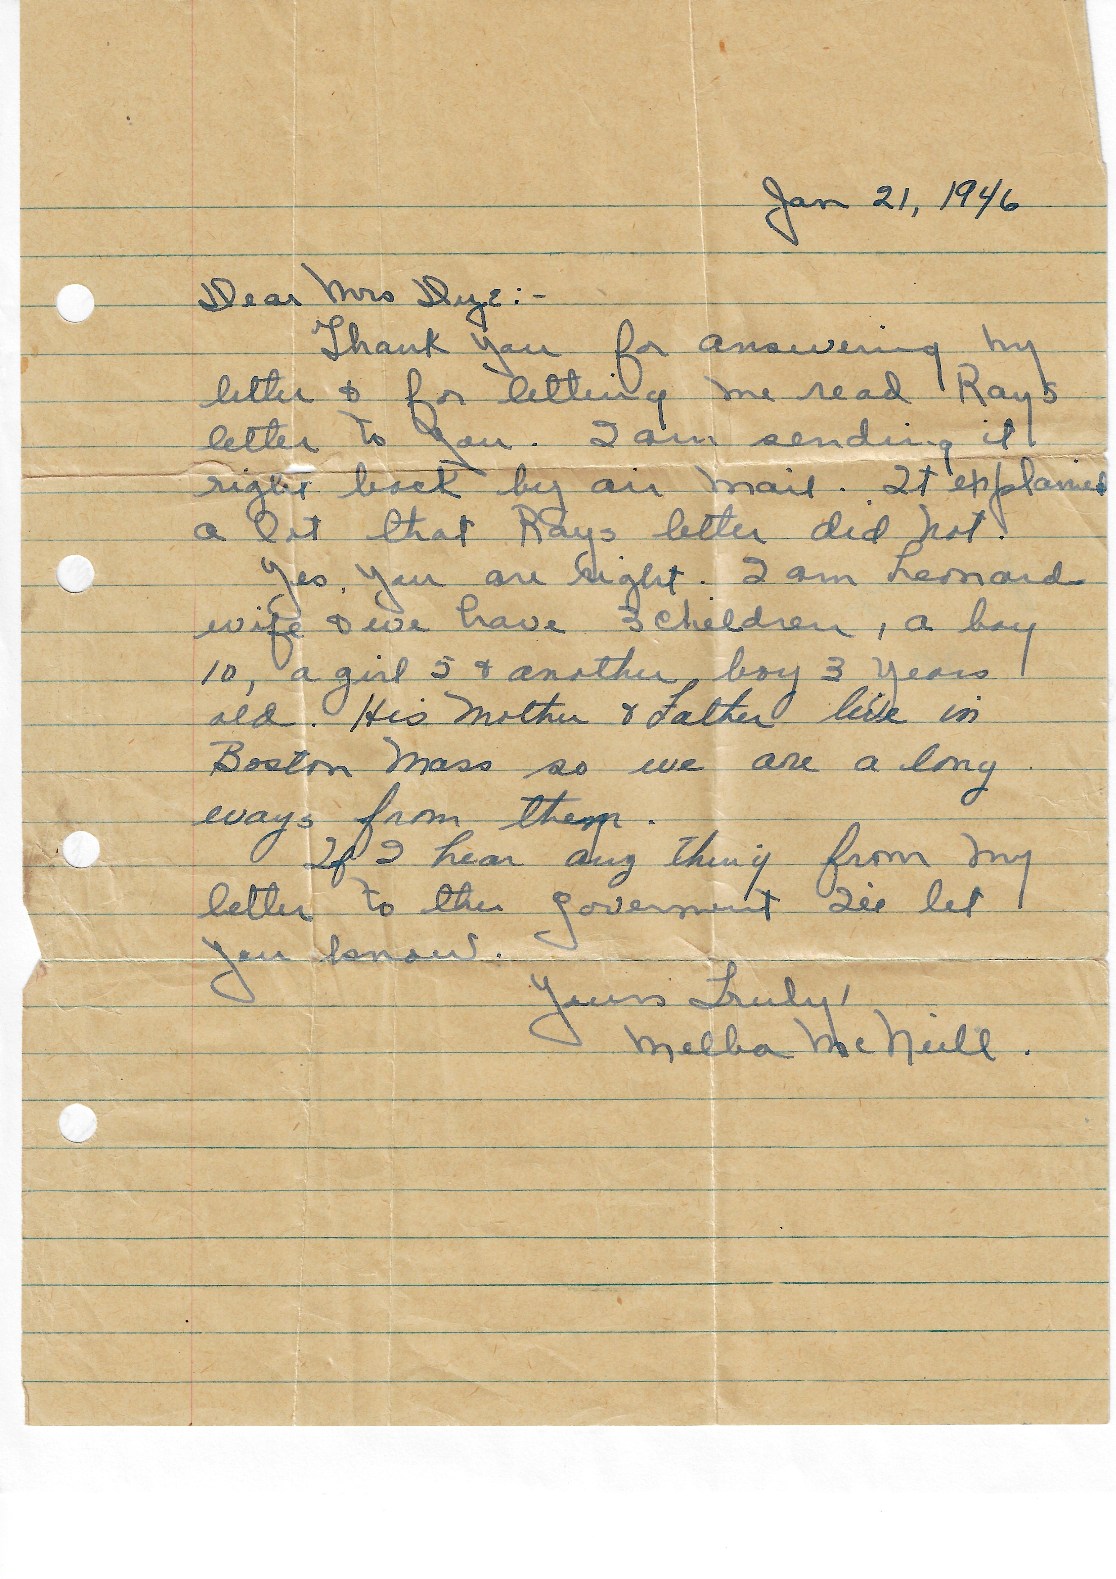 Jan 21, 1946
Dear Mrs Dye:-
Thank you for answering my
letter & for letting me read Rays
letter to you. I am sending it
right back by air mail. It explained
a lot that Rays letter did not.
Yes, you are right. I am Leonard
wife & we have 3 cheildren, a boy
10, a girl 5 & another boy 3 years
old. His Mother & Father live in
Boston Mass so we are a long
ways from them.
If I hear any thing from my
letter to the goverment I'll let
you know.
Yours Truly,
Melba McNeill.